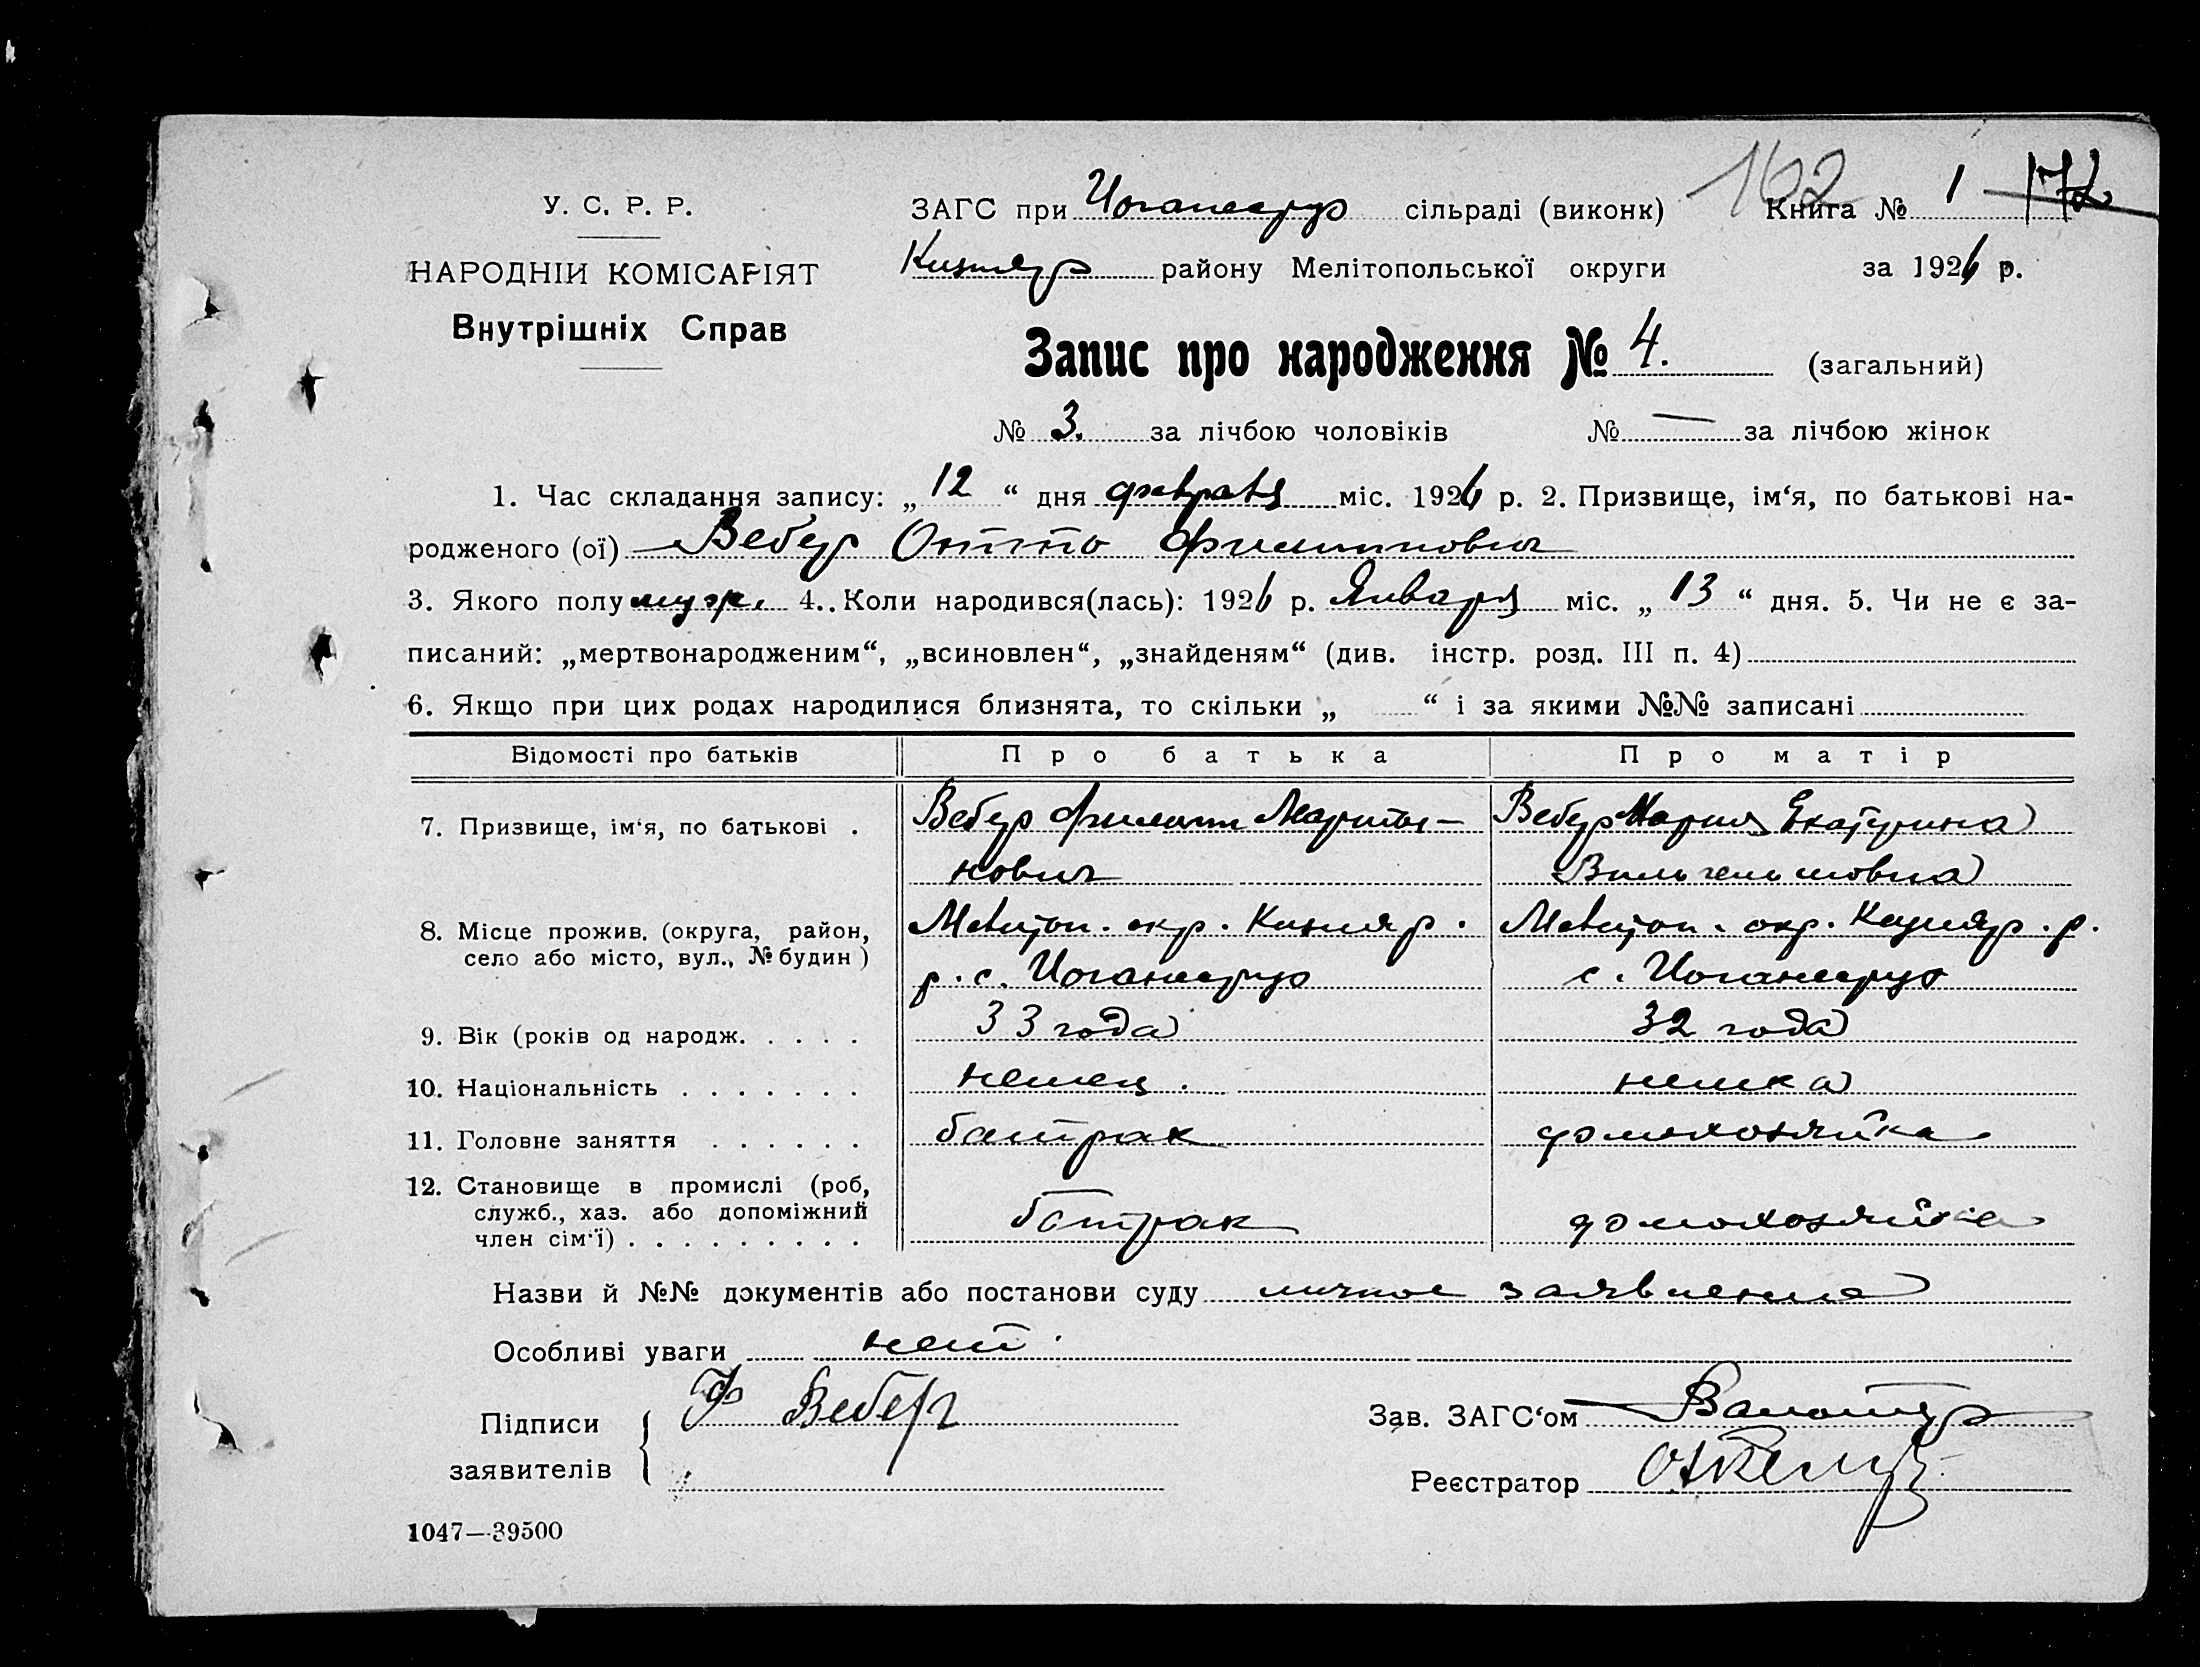 162
У. С. Р. Р.
ЗАГС при Иоганесруэ сільраді (виконк) Книга № 1 172
НАРОДНІЙ КОМІСАРІЯТ
Кизияр району Мелітопольської округи за 1926 р.
Внутрішніх Справ
Запис про народження № 4. (загальний)
№ 3. за лічбою чоловіків № — за лічбою жінок
1. Час складання запису: „12“ дня февраля міс. 1926 р. 2. Призвище, ім‘я, по батькові на-
родженого (ої) Вебер Отто Филиппович
3. Якого полу муж. 4.. Коли народився(лась): 1926 р. Января міс. „13“ дня. 5. Чи не є за-
писаний: „мертвонародженим“, „всиновлен“, „знайденям“ (див. інстр. розд. III п. 4)
6. Якщо при цих родах народилися близнята, то скільки „ “ і за якими №№ записані
Відомості про батьків Про батька Про матір
7. Призвище, ім‘я, по батькові . Вебер Филипп Марты- Вебер Мария Екатерина
нович Вильгельмовна
8. Місце прожив. (округа, район, Мелитоп. окр. Кизияр. Мелитоп. окр. Кизияр. р.
село або місто, вул., № будин) р. с. Иоганесруэ с. Иоганесруэ
9. Вік (років од народж. . . . . 33 года 32 года
10. Національність . . . . . . . немец. немка
11. Головне заняття . . . . . . батрак домохозяйка
12. Становище в промислі (роб,
служб., хаз. або допоміжний батрак домохозяйка
член сім‘ї) . . . . . . . . .
Назви й №№ документів або постанови суду личное заявление
Особливі уваги нет.
Підписи Ф Вебер Зав. ЗАГС‘ом
заявителів Реєстратор
1047—39500